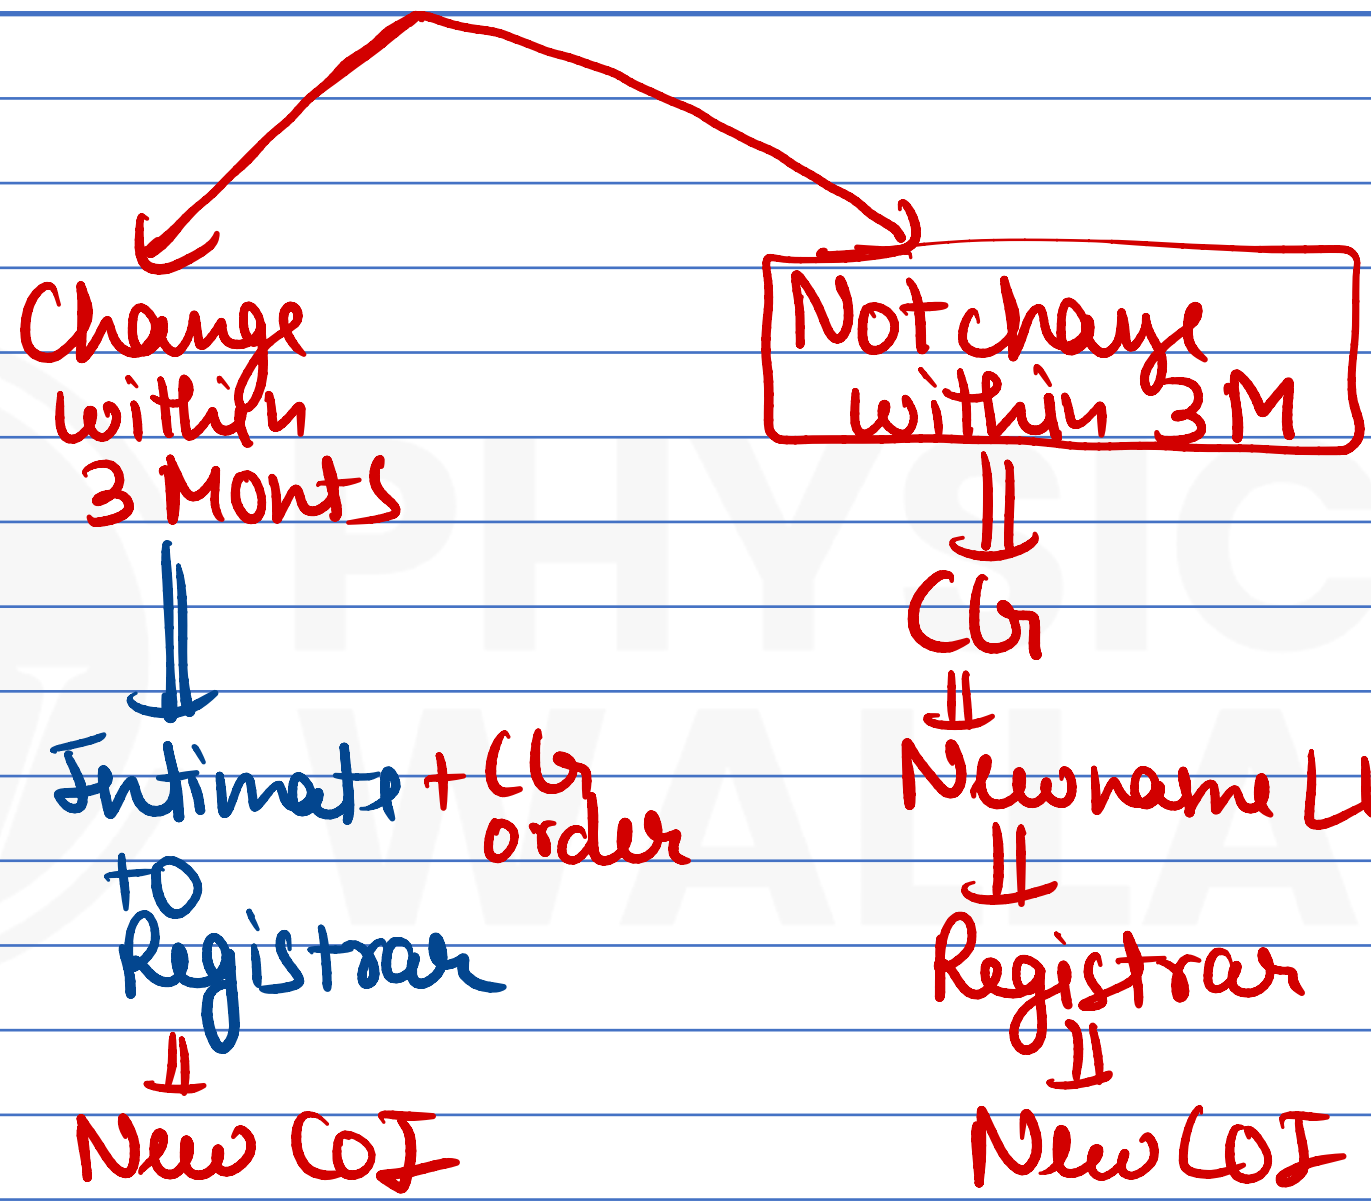 Change
within
3 Monts
Intimate + CG
order
to
Registrar
New COI
Not change
within 3 M
CG
New name
Registrar
New COI
PHYSIC
WALLA